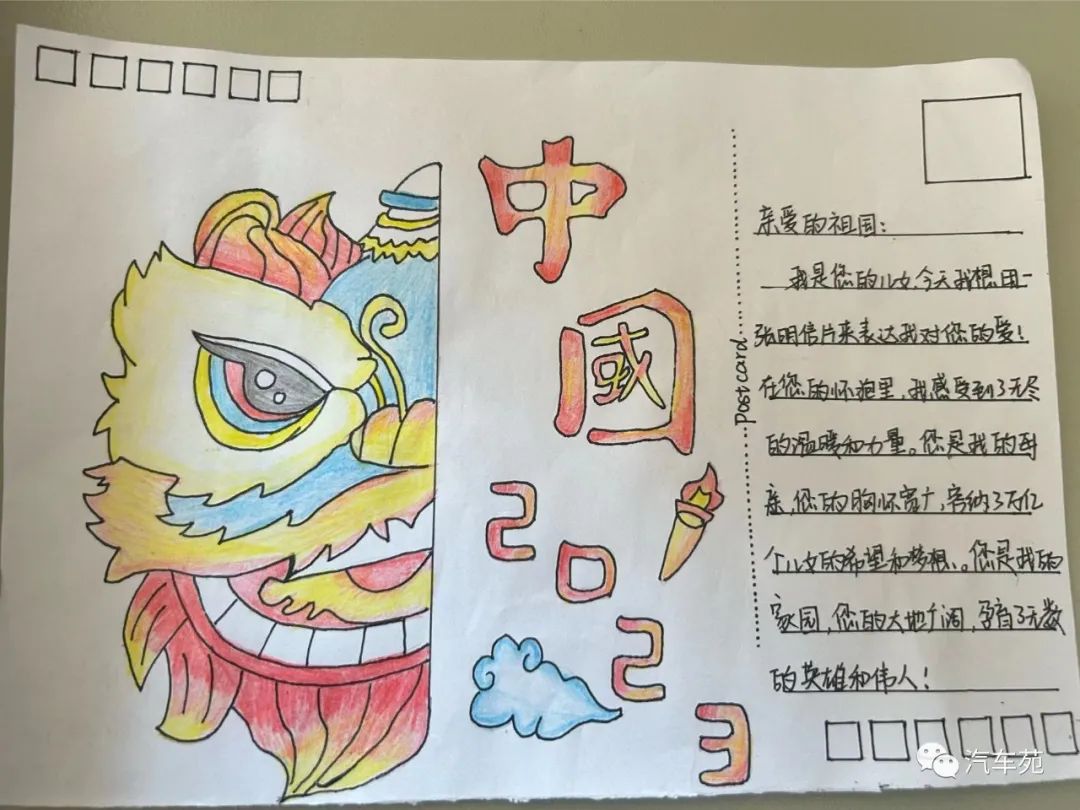 中國
2023
Postcard
亲爱的祖国：
我是您的儿女，今天我想用一
张明信片来表达我对您的爱！
在您的怀抱里，我感受到了无尽
的温暖和力量。您是我的母
亲，您的胸怀宽广，容纳了万亿
个儿女的希望和梦想。您是我的
家园，您的大地广阔，孕育了无数
的英雄和伟人！
汽车苑